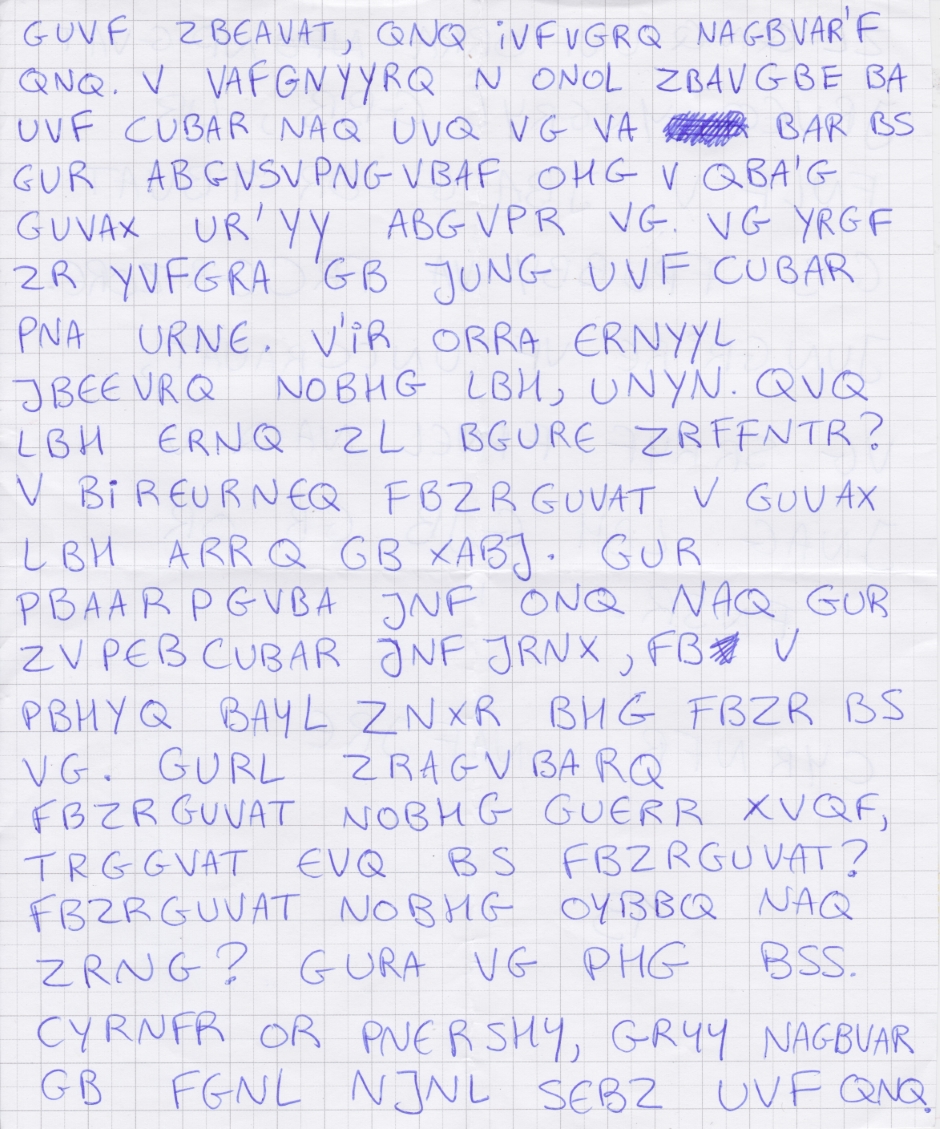 GUVF ZBEAVAT, QNQ iVFVGRQ NAGBVAR'F
QNQ. V VAFGNYYRQ N ONOL ZBAVGBE BA
UVF CUBAR NAQ UVQ VG VA BAR BS
GUR ABGVSVPNGVBAF OHG V QBA'G
GUVAX UR'YY ABGVPR VG. VG YRGF
ZR YVFGRA GB JUNG UVF CUBAR
PNA URNE. V'iR ORRA ERNYYL
JBEEVRQ NOBHG LBH, UNYN. QVQ
LBH ERNQ ZL BGURE ZRFFNTR?
V BiREURNEQ FBZRGUVAT V GUVAX
LBH ARRQ GB XABJ. GUR
PBAARPGVBA JNF ONQ NAQ GUR
ZVPEBCUBAR JNF JRNX, FB V
PBHYQ BAYL ZNXR BHG FBZR BS
VG. GURL ZRAGVBARQ
FBZRGUVAT NOBHG GUERR XVQF,
TRGGVAT EVQ BS FBZRGUVAT?
FBZRGUVAT NOBHG OYBBQ NAQ
ZRNG? GURA VG PHG BSS.
CYRNFR OR PNERSHY, GRYY NAGBVAR
GB FGNL NJNL SEBZ UVF QNQ.